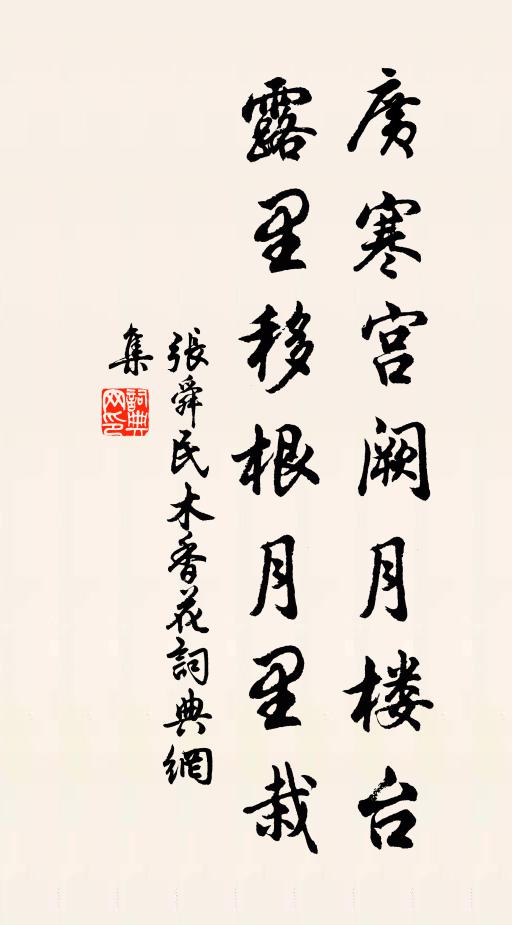 廣寒宫阙月楼台
露里移根月里栽
張舜民木香花詞典網
集
詞典网印